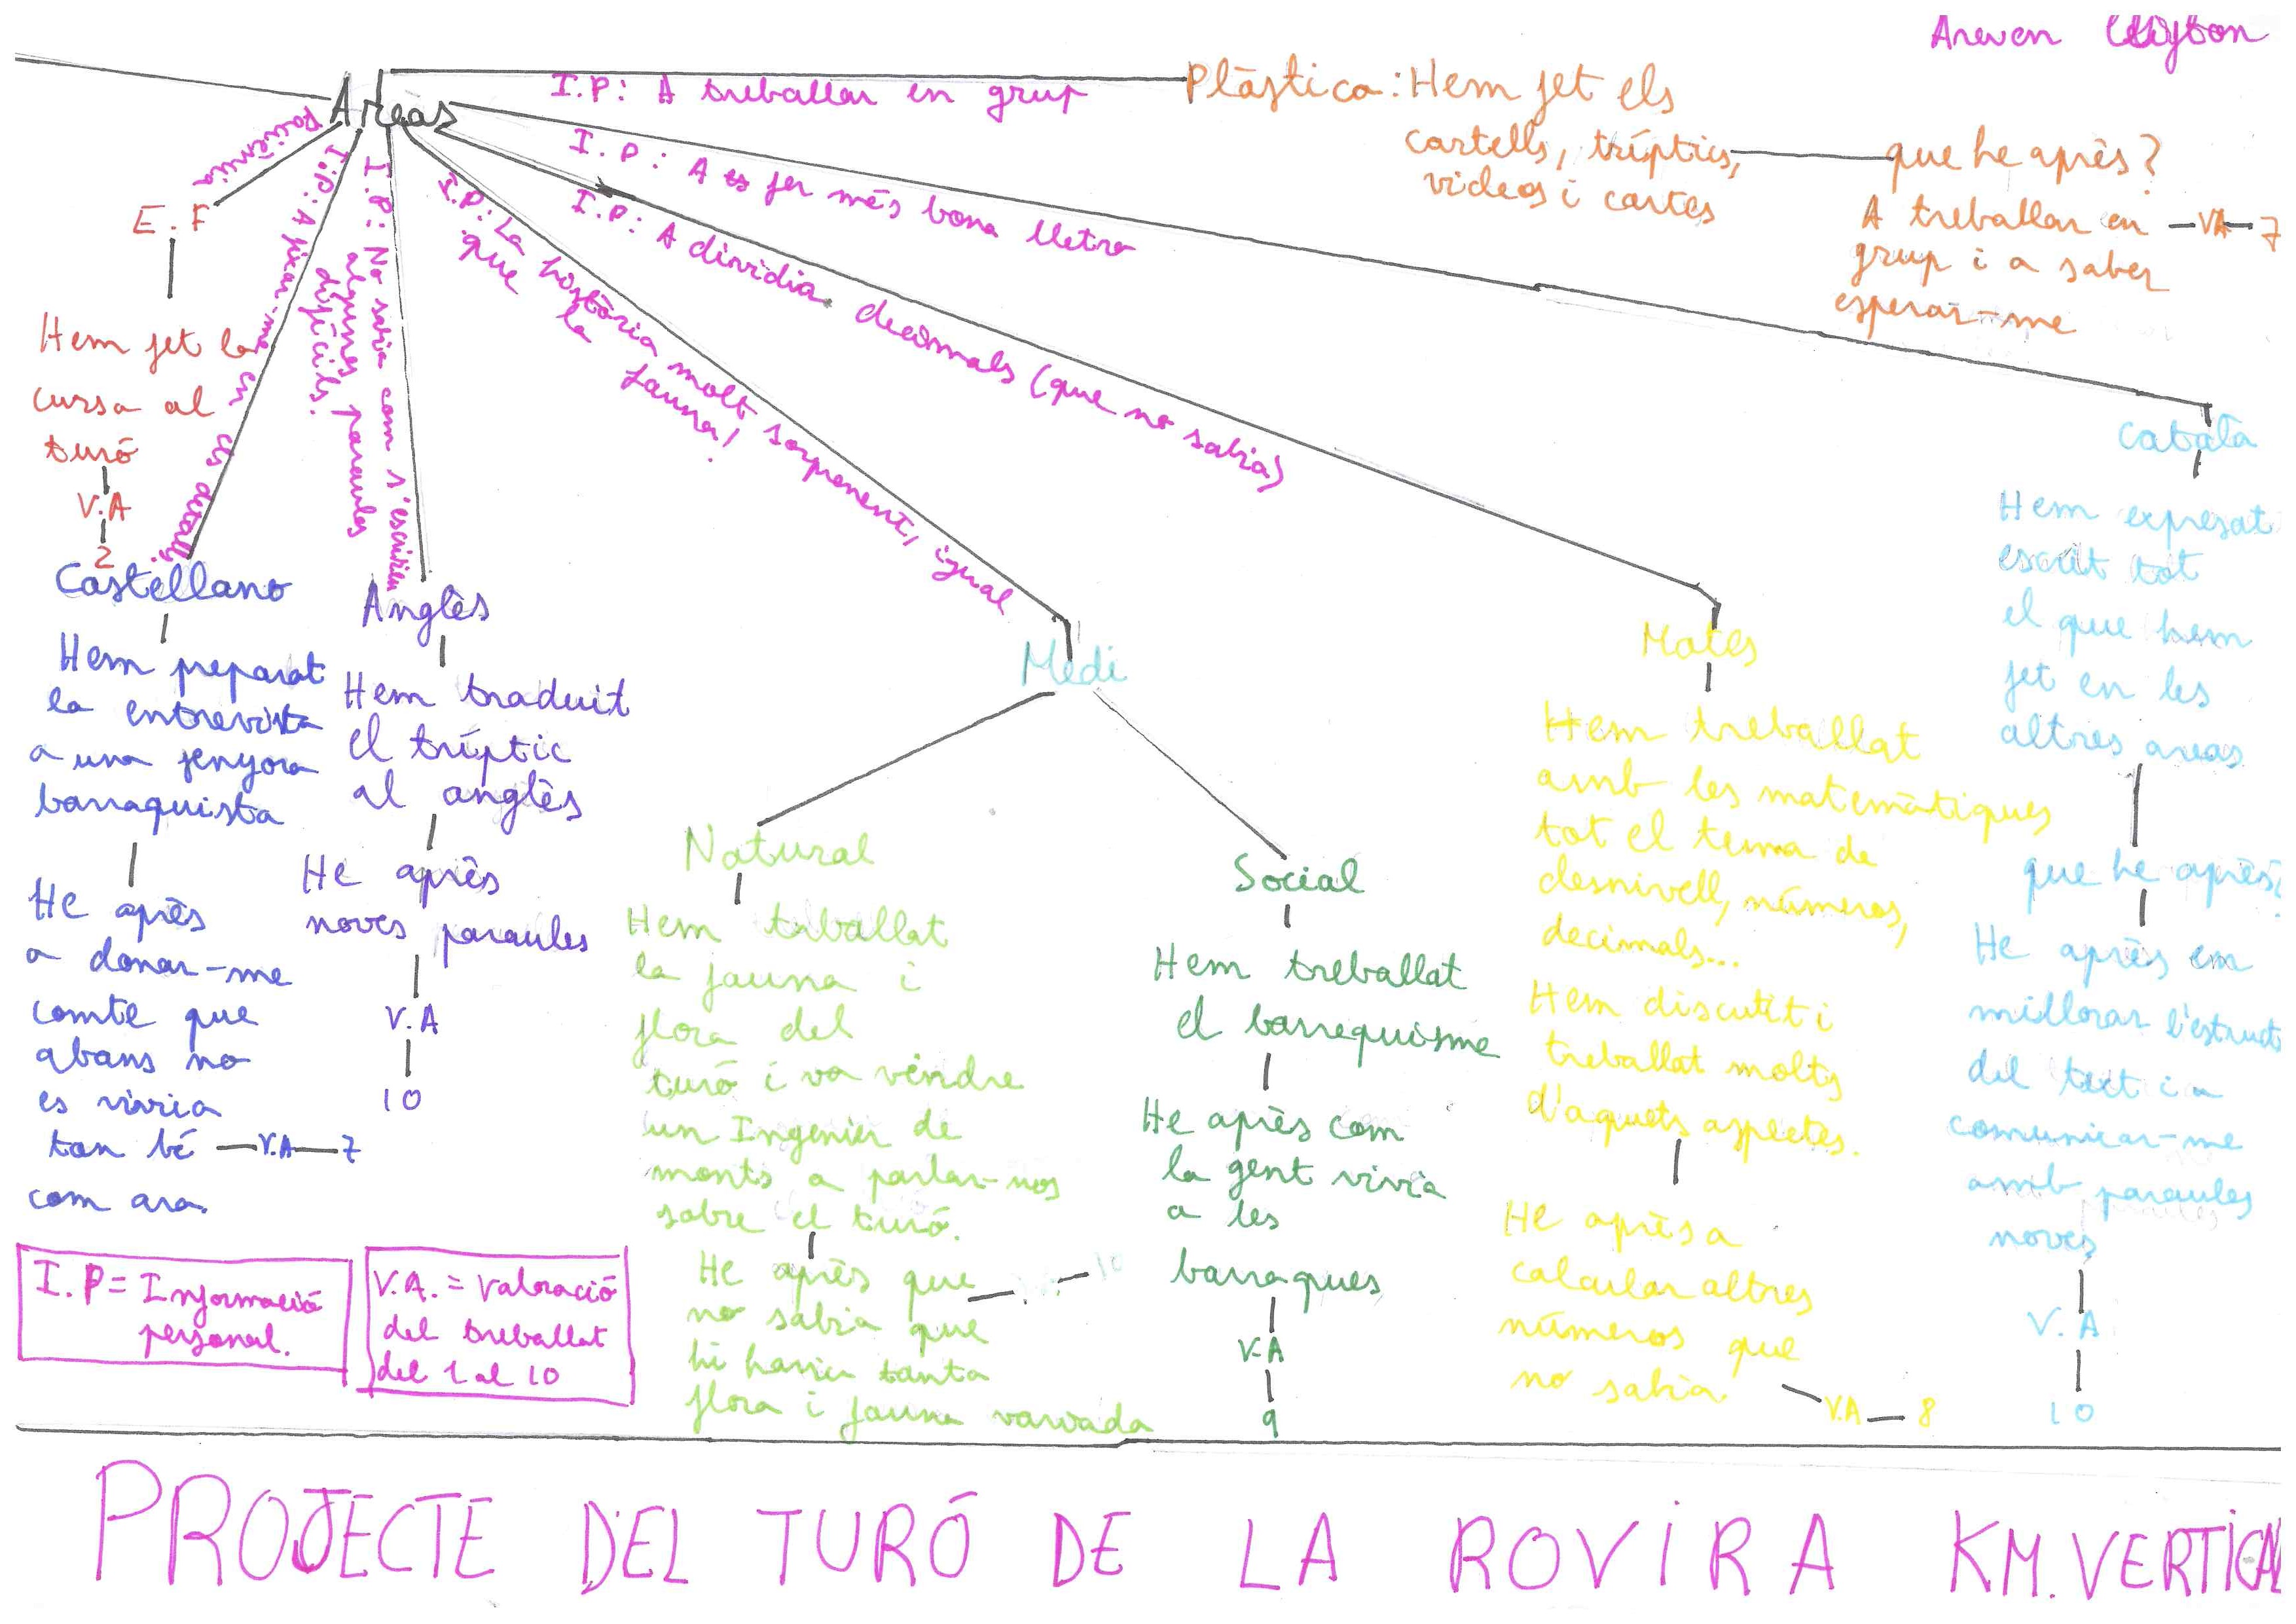 Areas
I.P: A treballar en grup
Plàstica: Hem fet els
cartells, tríptics,
videos i cartes
que he après?
A treballar en
grup i a saber
esperar-me
VA 7
I.P: A es fer més bona lletra
Català
Hem expresat
escrit tot
el que hem
fet en les
altres areas
que he après?
He après em
millorar l'estruct
del text i a
comunicar-me
amb paraules
noves
V.A
10
I.P: A dividia decimals (que no sabia)
Mates
Hem treballat
amb les matemàtiques
tot el tema de
desnivell, números,
decimals...
Hem discutit i
treballat molts
d'aquets aspectes.
He après a
calcular altres
números que
no sabia
V.A 8
I.P: La història molt sorprenent, igual
que la fauna!
Medi
Natural
Hem triballat
la fauna i
flora del
turó i va vendre
un Ingenier de
monts a parlar-nos
sobre el turó.
He après que
no sabia que
hi havia tanta
flora i fauna variada
10
Social
Hem treballat
el barrequisme
He après com
la gent vivia
a les
barraques
V.A
9
I.P: No sabia com s'escrivien
algunes paraules
difícils.
Anglès
Hem traduit
el tríptic
al anglès
He après
noves paraules
V.A
10
I.P: A fixar-me en els detalls
Castellano
Hem preparat
la entrevista
a una senyora
barraquista
He après
a donar-me
comte que
abans no
es vivia
tan bé V.A 7
com ara.
paciència
E.F
Hem fet la
cursa al
turó
V.A
2
I.P = Informació
personal.
V.A. = Valoració
del treballat
del 1 al 10
PROJECTE DEL TURÓ DE LA ROVIRA KM. VERTICAL